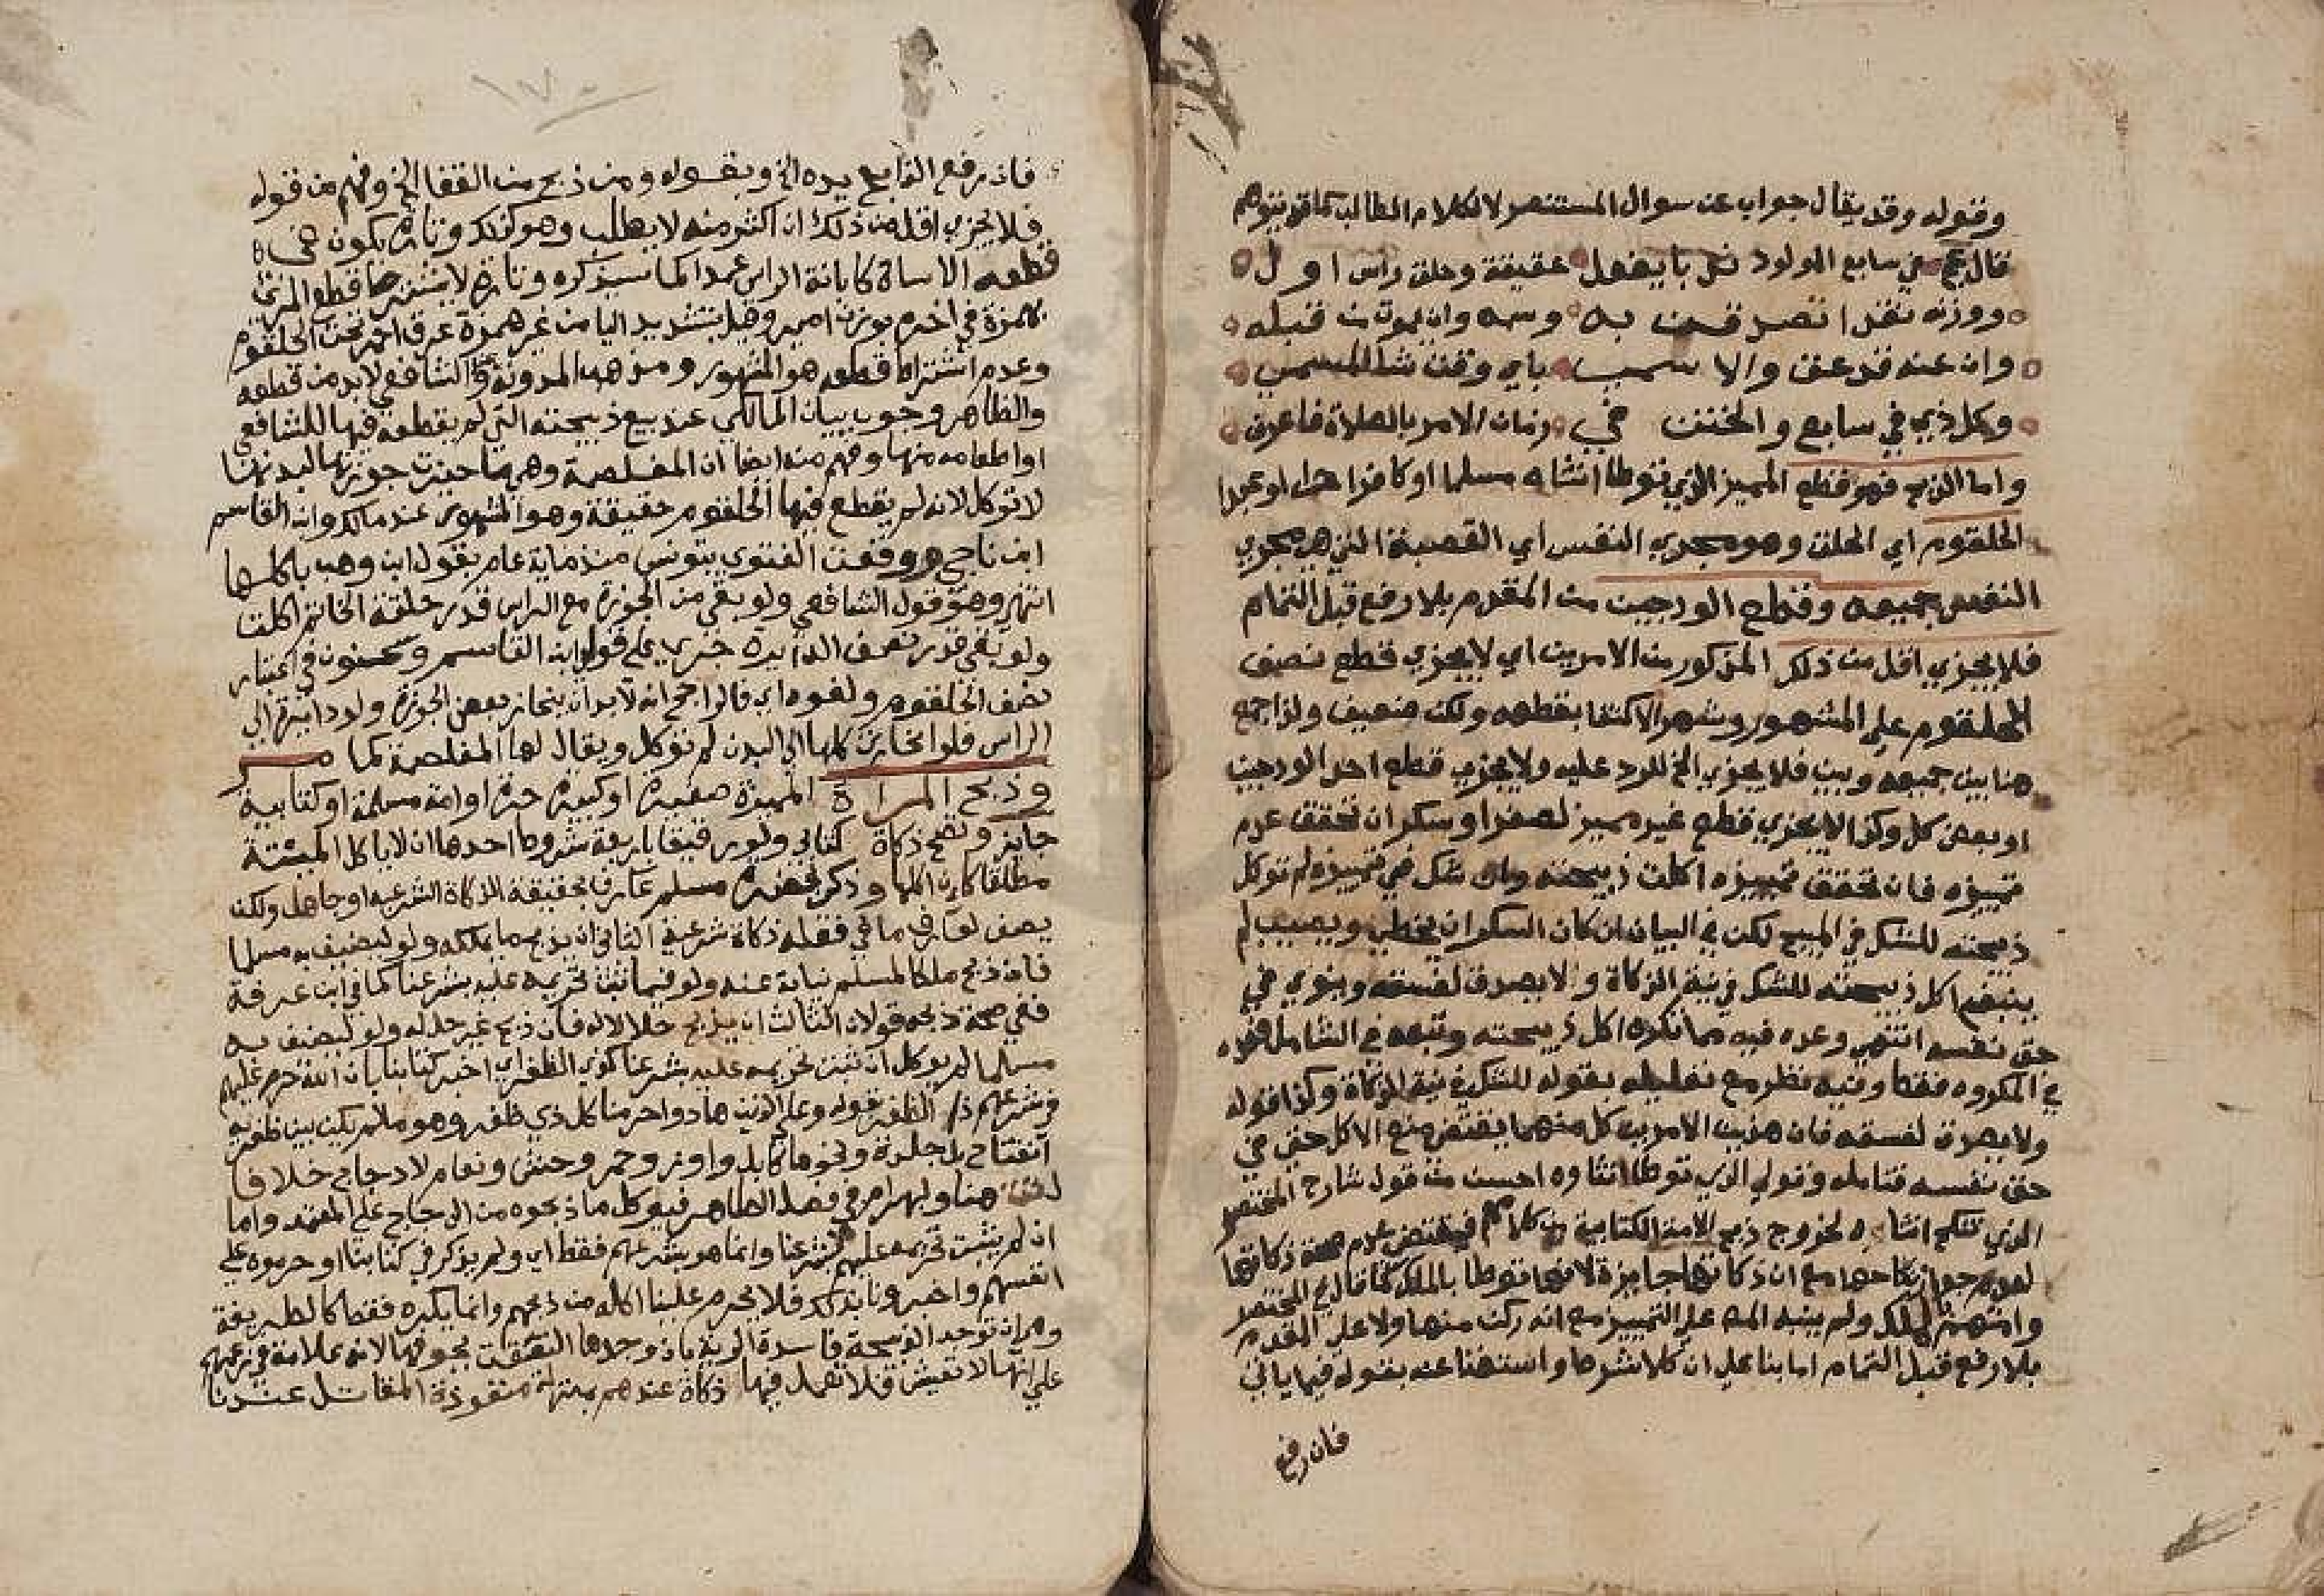 وقوله وقد يقال جواب عن سوال المستنصر لا لكلام الطالب كما قد يتوهم
قال عج في سابع المولود ندبا يفعل عقيقة وحلق راس اول
ووزنه نقدا تصدقن به وسمه وان يموتن قبله
وان عنه قد عق والا سمين باي وقت شا المسمى
وكل ذي في سابع والختن في زمان الامر بالصلاة فاعرف
واما الذبح فهو قطع المميز الذي توطا انثاه مسلما او كافرا حرا او عبدا
الحلقوم اي الحلق وهو مجرى النفس اي القصبة التي هي مجرى
النفس جميعه وقطع الودجين من المقدم بلا رفع قبل التمام
فلا يجزي اقل من ذلك المذكور من الامرين اي لا يجزي قطع نصف
الحلقوم على المشهور وشهر الاكتفا بقطعه ولكن ضعيف ولذا جمع
هنا بين جميعه وبين فلا يجزي الخ للرد عليه ولا يجزي قطع احد الودجين
او بعض كل وكذا لا يجزي قطع غير مميز لصغر او سكران تحقق عدم
تمييزه فان تحقق تمييزه اكلت ذبيحته وان شك في تمييزه لم توكل
ذبيحته للشك في المبيح لكن في البيان ان كان السكران يخطي ويصيب لم
ينبغ اكل ذبيحته للشك في نية الزكاة ولا يصدق لفسقه وينوي في
حق نفسه انتهى وعده فيه مما تكره اكل ذبيحته وتبعه في الشامل فعده
في المكروه فقط وفيه نظر مع تعليله بقوله للشك في نية الزكاة وكذا قوله
ولا يصدق لفسقه فان هذين الامرين كل منهما يقتضي منع الاكل حتى في
حق نفسه فتامله وقولي الذي توطا انثاه احسن من قول شارح المختصر
الذي تنكح انثاه لخروج ذبح الامة الكتابية من كلامهم فيقتضي عدم صحة ذكاتها
لعدم جواز نكاحها مع ان ذكاتها جايزة لانها توطا بالملك كما قال في المختصر
وامتهم بالملك ولم ينبه المص على التمييز مع انه ركن منها ولا على المقدم
بلا رفع قبل التمام اما بنا على ان كلا شرط واستغنا عنه بقوله فيما ياتي
فان رفع
فان رفع الذابح يده الخ وبقوله ومن ذبح من القفا الخ وفهم من قوله
فلا يجزي اقل من ذلك ان اكثر منه لا يطلب وهو كذلك وتارة يكون في
قطعه الاساة كابانة الراس عمدا كما سيذكره وتارة لا يشترط قطع المري
بهمزة في اخره بوزن امير وقيل بتشديد اليا من غير همزة عرق احمر تحت الحلقوم
وعدم اشتراط قطعه هو المشهور ومذهب المدونة والشافعي لا بد من قطعه
والظاهر وجوب بيان المالكي عند بيع ذبيحته التي لم يقطعه فيها للشافعي
او اطعامه منها وفهم منه ايضا ان المغلصمة وهي ما حيزت جوزتها لبدنها
لا توكل لانه لم يقطع فيها الحلقوم حقيقة وهو المشهور عند مالك وابن القاسم
ابن ناجي ووقعت الفتوى بتونس منذ ماية عام بقول ابن وهب باكلها
انتهى وهو قول الشافعي ولو بقي من الجوزة مع الراس قدر حلقة الخاتم اكلت
ولو بقي قدر نصف الدايرة جرى على قول ابن القاسم وسحنون في اعتبار
نصف الحلقوم ولغوه اي فالراجح انه لا بد ان ينحاز بعض الجوزة ولو دايرة الى
الراس فلو انحازت كلها الى البدن لم توكل ويقال لها المغلصمة كما مر
وذبح المراة المميزة صغيرة او كبيرة حرة او امة مسلمة او كتابية
جايز وتصح ذكاة كتابي ولو رقيقا باربعة شروط احدها ان لا ياكل الميتة
مطلقا كان اكلها وذكى بحضرة مسلم عارف بحقيقة الزكاة الشرعية او جاهل ولكن
يصف لعارف ما في فعله ذكاة شرعية الثاني ان يذبح ما يملكه ولو ليضيف به مسلما
فان ذبح ملكا لمسلم نيابة عنه ولو فيما ثبت تحريمه عليه بشرعنا كما في ابن عرفة
ففي صحة ذبحه قولان الثالث ان يذبح حلالا له فان ذبح غير حل له ولو ليضيف به
مسلما لم يوكل ان ثبت تحريمه عليه بشرعنا كذي الظفر اي اخبر كتابنا بان الله حرم عليهم
في شرعهم ذا الظفر بقوله وعلى الذين هادوا حرمنا كل ذي ظفر وهو ما لم يكن بين ظفريه
انفتاح بل جلدة ونحوها كابل واوز وحمر وحش ونعام لا دجاج خلافا
هنا ولبهرام في فصل الطاهر فيوكل ما ذبحوه من الدجاج على المعتمد واما
ان لم يثبت تحريمه عليهم بشرعنا وانما هو بشرعهم فقط اي ولم يذكر في كتابنا او حرموه على
انفسهم واخبرونا بذلك فلا يحرم علينا اكله من ذبحهم وانما يكره فقط كالطريفة
وهي ان توجد الذبيحة فاسدة الرية بان وجدها التصقت بجوفها لانه علامة في زعمهم
على انها لا تعيش فلا تعمل فيها ذكاة عندهم بمنزلة منفوذة المقاتل عندنا